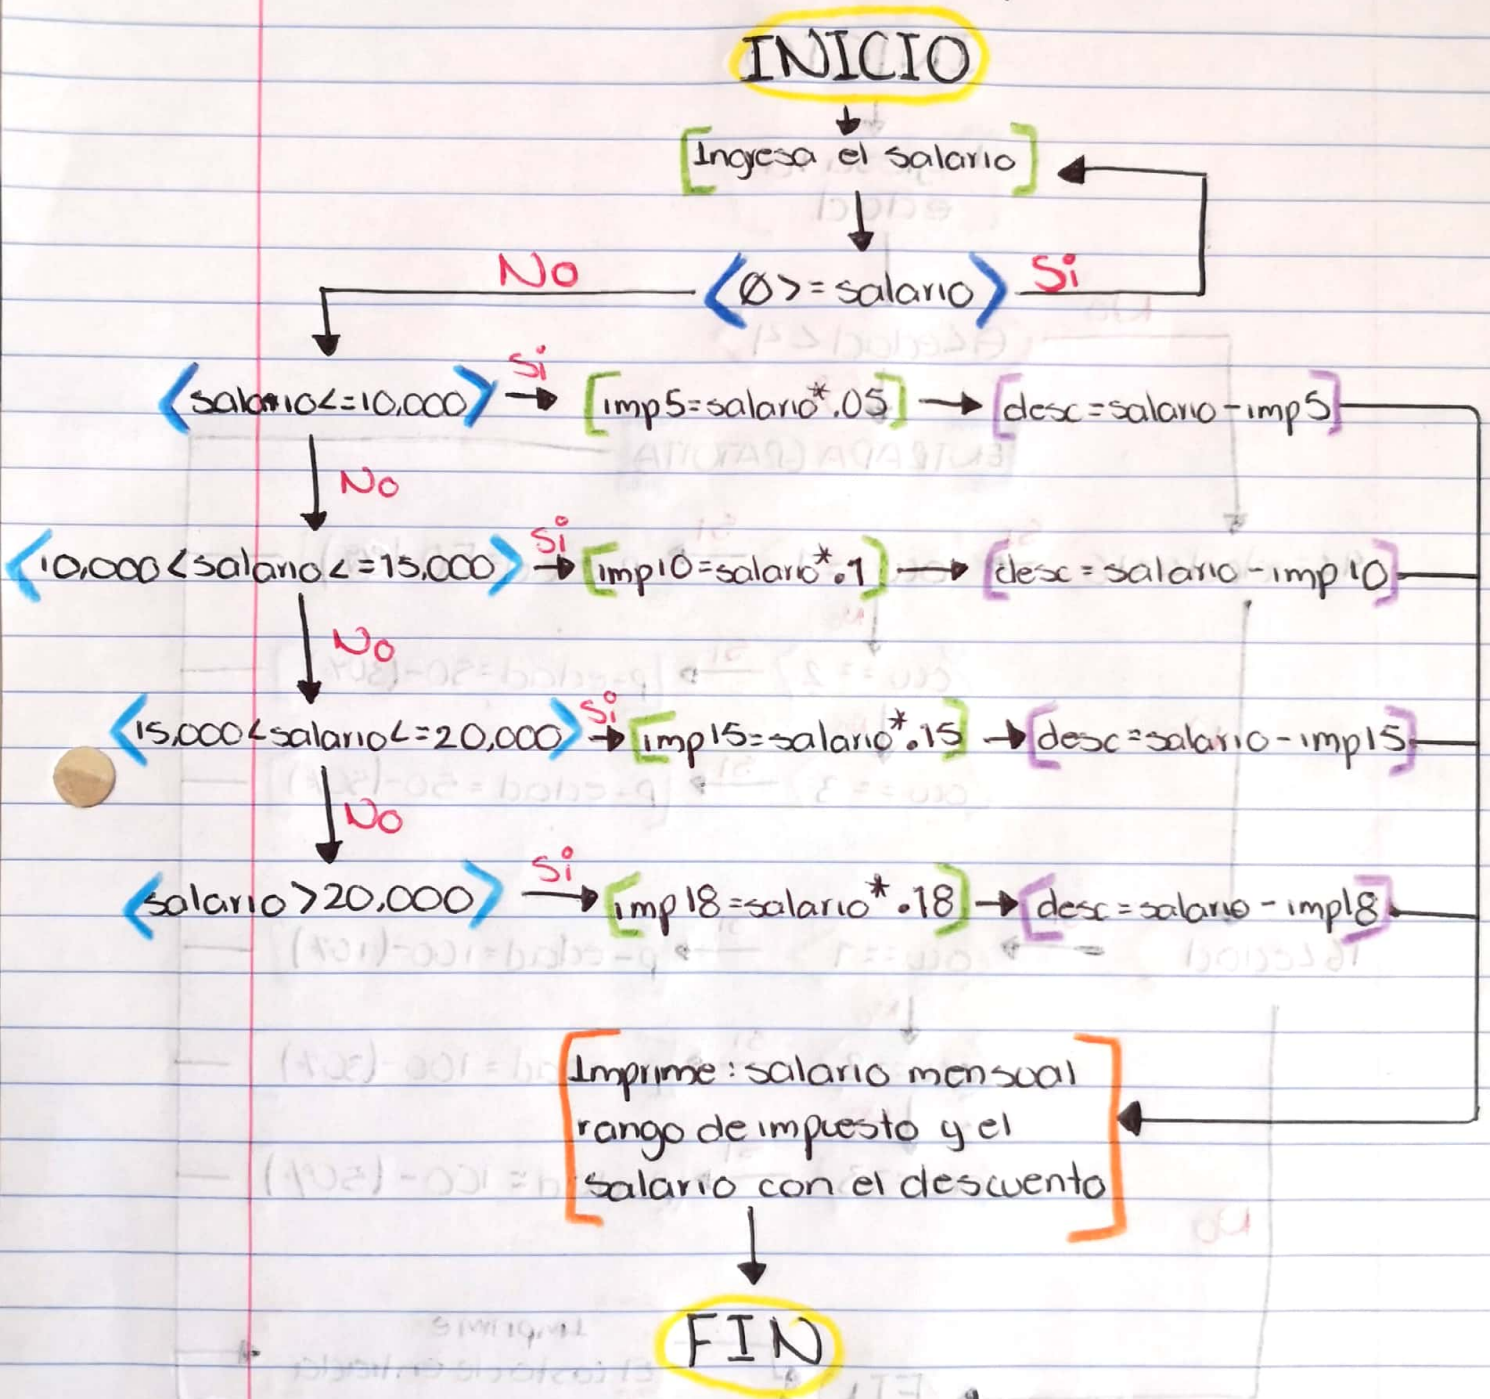 INICIO
Ingresa el salario
No
0>=salario
Si
salario<=10,000
Si
imp5=salario*.05
desc=salario-imp5
No
10,000<salario<=15,000
Si
imp10=salario*.1
desc=salario-imp10
No
15,000<salario<=20,000
Si
imp15=salario*.15
desc=salario-imp15
No
salario>20,000
Si
imp18=salario*.18
desc=salario-imp18
Imprime: salario mensual
rango de impuesto y el
salario con el descuento
FIN